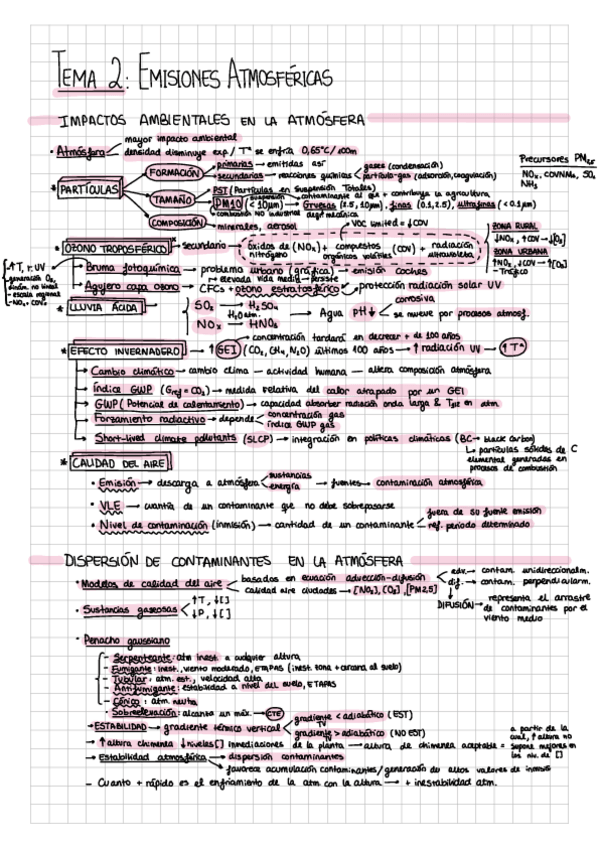 TEMA 2: EMISIONES ATMOSFÉRICAS
IMPACTOS AMBIENTALES EN LA ATMÓSFERA
• Atmósfera mayor impacto ambiental
densidad disminuye exp / Tª se enfría 0,65°C/100m
* PARTÍCULAS
FORMACIÓN primarias → emitidas así
secundarias → reacciones químicas gases (condensación)
partícula-gas (adsorción, coagulación)
Precursores PM2,5
NOx, COVNMs, SO2
NH3
TAMAÑO PST (Partículas en Suspensión Totales)
PM10 (<10μm) → Gruesas (2.5, 10μm), finas (0.1, 2.5), ultrafinas (<0.1μm)
suspensión contaminante al que + contribuye la agricultura
combustión NO industrial degr mecánica
COMPOSICIÓN → minerales, aerosol
VOC limited = ↓COV
* OZONO TROPOSFÉRICO → secundario → óxidos de nitrógeno (NOx) + compuestos orgánicos volátiles (COV) + radiación ultravioleta
ZONA RURAL
↓NOx, ↑COV → ↓[O3]
ZONA URBANA
↑NOx, ↓COV → ↑[O3]
- Tráfico
↑T, r. UV
generación O3,
dinám. no lineal
- escala regional
- NOx, COVs
→ Bruma fotoquímica → problema urbano (gráfica) → emisión coches
elevada vida media → persiste
→ Agujero capa ozono → CFCs + ozono estratosférico → protección radiación solar UV
* LLUVIA ÁCIDA
SOx → H2SO4
H2O atm.
NOx → HNO3
→ Agua pH↓ corrosiva
se mueve por procesos atmosf.
* EFECTO INVERNADERO → ↑ GEI (CO2, CH4, N2O) últimos 400 años → ↑ radiación UV → ↑Tª
concentración tardará en decrecer + de 100 años
→ Cambio climático → cambio clima — actividad humana — altera composición atmósfera
→ Índice GWP (Gref = CO2) → medida relativa del calor atrapado por un GEI
→ GWP (Potencial de calentamiento) → capacidad absorber radiación onda larga & T en atm
→ Forzamiento radiactivo → depende concentración gas
índice GWP gas
→ Short-lived climate pollutants (SLCP) → integración en políticas climáticas (BC → black carbon)
↳ partículas sólidas de C
elemental generadas en
procesos de combustión
* CALIDAD DEL AIRE
• Emisión → descarga a atmósfera sustancias
energía → fuentes → contaminación atmosférica
• VLE → cuantía de un contaminante que no debe sobrepasarse
• Nivel de contaminación (inmisión) → cantidad de un contaminante fuera de su fuente emisión
ref. periodo determinado
DISPERSIÓN DE CONTAMINANTES EN LA ATMÓSFERA
• Modelos de calidad del aire basados en ecuación advección-difusión adv. → contam. unidireccionalm.
dif. → contam. perpendicularm.
calidad aire ciudades → [NO2], [O3], [PM2,5]
DIFUSIÓN → representa el arrastre
de contaminantes por el
viento medio
• Sustancias gaseosas ↑T, ↓[]
↓P, ↓[]
• Penacho gaussiano
- Serpenteante: atm inest. a cualquier altura
- Fumigante: inest., viento moderado, ETAPAS (inest. zona + cercana al suelo)
- Tubular: atm. est., velocidad alta
- Antifumigante: estabilidad a nivel del suelo, ETAPAS
- Cónica: atm. neutra
• Sobreelevación: alcanta un máx. → CTE
→ ESTABILIDAD → gradiente térmico vertical gradiente TV < adiabático (EST)
gradiente TV > adiabático (NO EST)
→ ↑ altura chimenea ↓ niveles [] inmediaciones de la planta → altura de chimenea aceptable = a partir de la
cual, ↑ altura no
supone mejoras en
los niv. de []
→ Estabilidad atmosférica → dispersión contaminantes
favorece acumulación contaminantes / generación de altos valores de inmisión
- Cuanto + rápido es el enfriamiento de la atm con la altura → + inestabilidad atm.